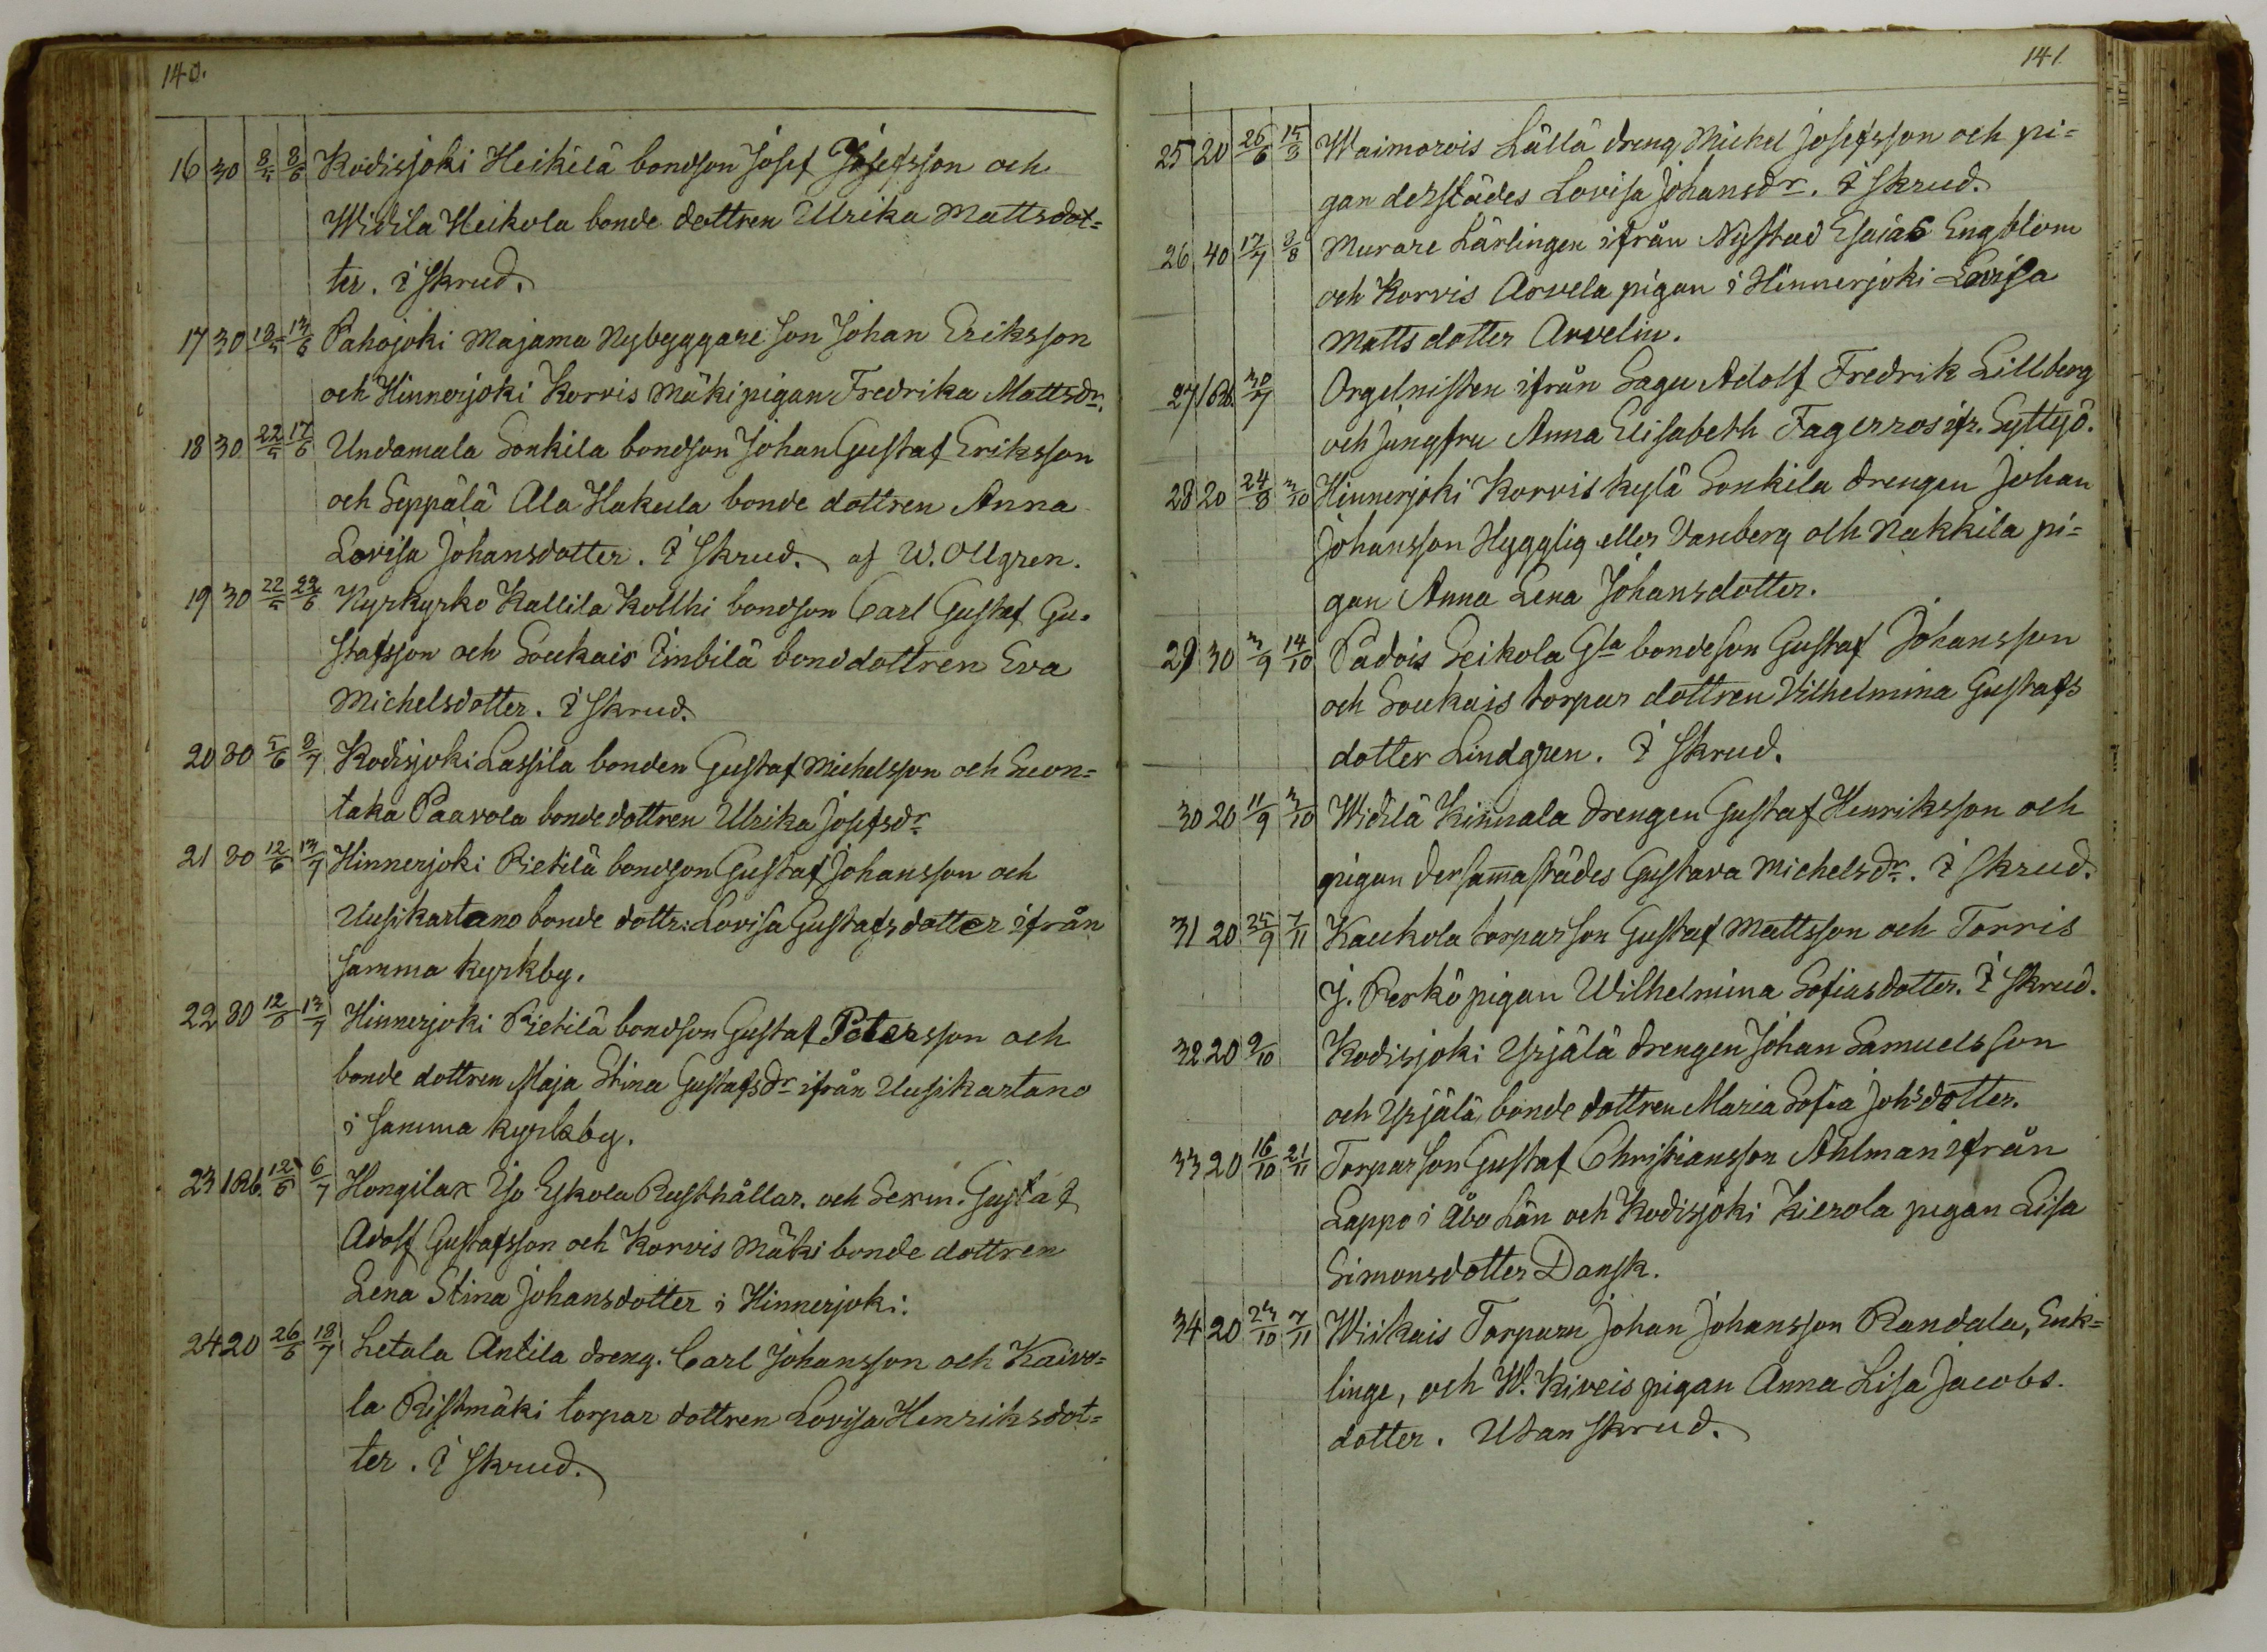 140.
16 30 8/5 8/6 Kodisjoki Heikilä bondson Josef Josefsson och
Widila Heikola bonde dottren Ulrika Mattsdot=
ter. I Skrud.
17 30 18/5 13/6 Pahojoki Majama Nybyggare Son Johan Eriksson
och Hinnerjoki Korvis Mäki pigan Fredrika Mattsdr.
18 30 22/5 17/6 Undamala Sonkila bondson Johan Gustaf Eriksson
och Seppälä Ala Hakula bonde dottren Anna
Lovisa Johansdotter. I Skrud. af W. Ollgren.
19 30 22/5 29/6 Nyrkyrko Kallila Kollhi bondson Carl Gustaf Gu=
stafsson och SoukaisИмbilä bonddottren Eva
Michelsdotter. I Skrud.
20 30 5/6 8/7 Kodisjoki Lassila bonden Gustaf Michelsson och Suon=
taka Paavola bondedottren Ulrika Josefsdr
21 30 12/6 13/7 Hinnerjoki Rietilä bondson Gustaf Johansson och
Uusikartano bonde dottr: Lovisa Gustafsdotter ifrån
samma kyrkby.
22 30 12/6 13/7 Hinnerjoki Rietilä bondson Gustaf Petersson och
bonde dottren Maja Stina Gustafsdr ifrån Uusikartano
i samma kyrkby.
23 1Rb. 12/6 6/7 Hongilax Iso Eskola Rusthållar. och Sexm. Gustaf
Adolf Gustafsson och Korvis Mäki bonde dottren
Lena Stina Johansdotter i Hinnerjoki.
24 20 26/6 18/7 Letala Antila dreng. Carl Johansson och Kaivo=
la Ristmäki torpar dottren Lovisa Henriksdot=
ter. I Skrud.
141
25 20 26/6 15/8 Waimorois Lällä dreng Michel Josefsson och pi=
gan derstädes Lovisa Johansdr. I Skrud.
26 40 17/7 8/8 Murare Lärlingen ifrån Nystad Esaias Engblom
och Korvis Arvela pigan i Hinnerjoki Lovisa
Mattsdotter Arvelin.
27 1Rb. 30/7 Orgelnisten ifrån Sagu Adolf Fredrik Lillberg
och Jungfru Anna Elisabeth Fagerros ifr. Gyttjö.
28 20 24/8 3/10 Hinnerjoki Korviskylä Sonkila drengen Johan
Johansson Hygglig eller Vanberg och Nakkila pi=
gan Anna Lena Johansdotter.
29 30 3/9 14/10 Padois Seikola Gla bondeson Gustaf Johansson
och Soukais torpar dottren Vilhelmina Gustafs
dotter Lindgren. I Skrud.
30 20 11/9 3/10 Widilä Kinnala drengen Gustaf Henriksson och
pigan dersammastädes Gustava Michelsdr. I Skrud.
31 20 25/9 7/11 Kaukola torpar son Gustaf Mattsson och Torris
Y. Perkö pigan Wilhelmina Sofiasdotter. I Skrud.
32 20 9/10 Kodisjoki Yrjälä drengen Johan Samuelsson
och Yrjälä bonde dottren Maria Sofia Johsdotter.
33 20 16/10 21/11 Torparson Gustaf Christiansson Ahlman ifrån
Lappo i Åbo Län och Kodisjoki Kierola pigan Lisa
Simonsdotter Dansk.
34 20 23/10 7/11 Wirikais Torparn Johan Johansson Randala, Enk=
linge, och W. Kiveis pigan Anna Lisa Jacobs.
dotter. Utan Skrud.